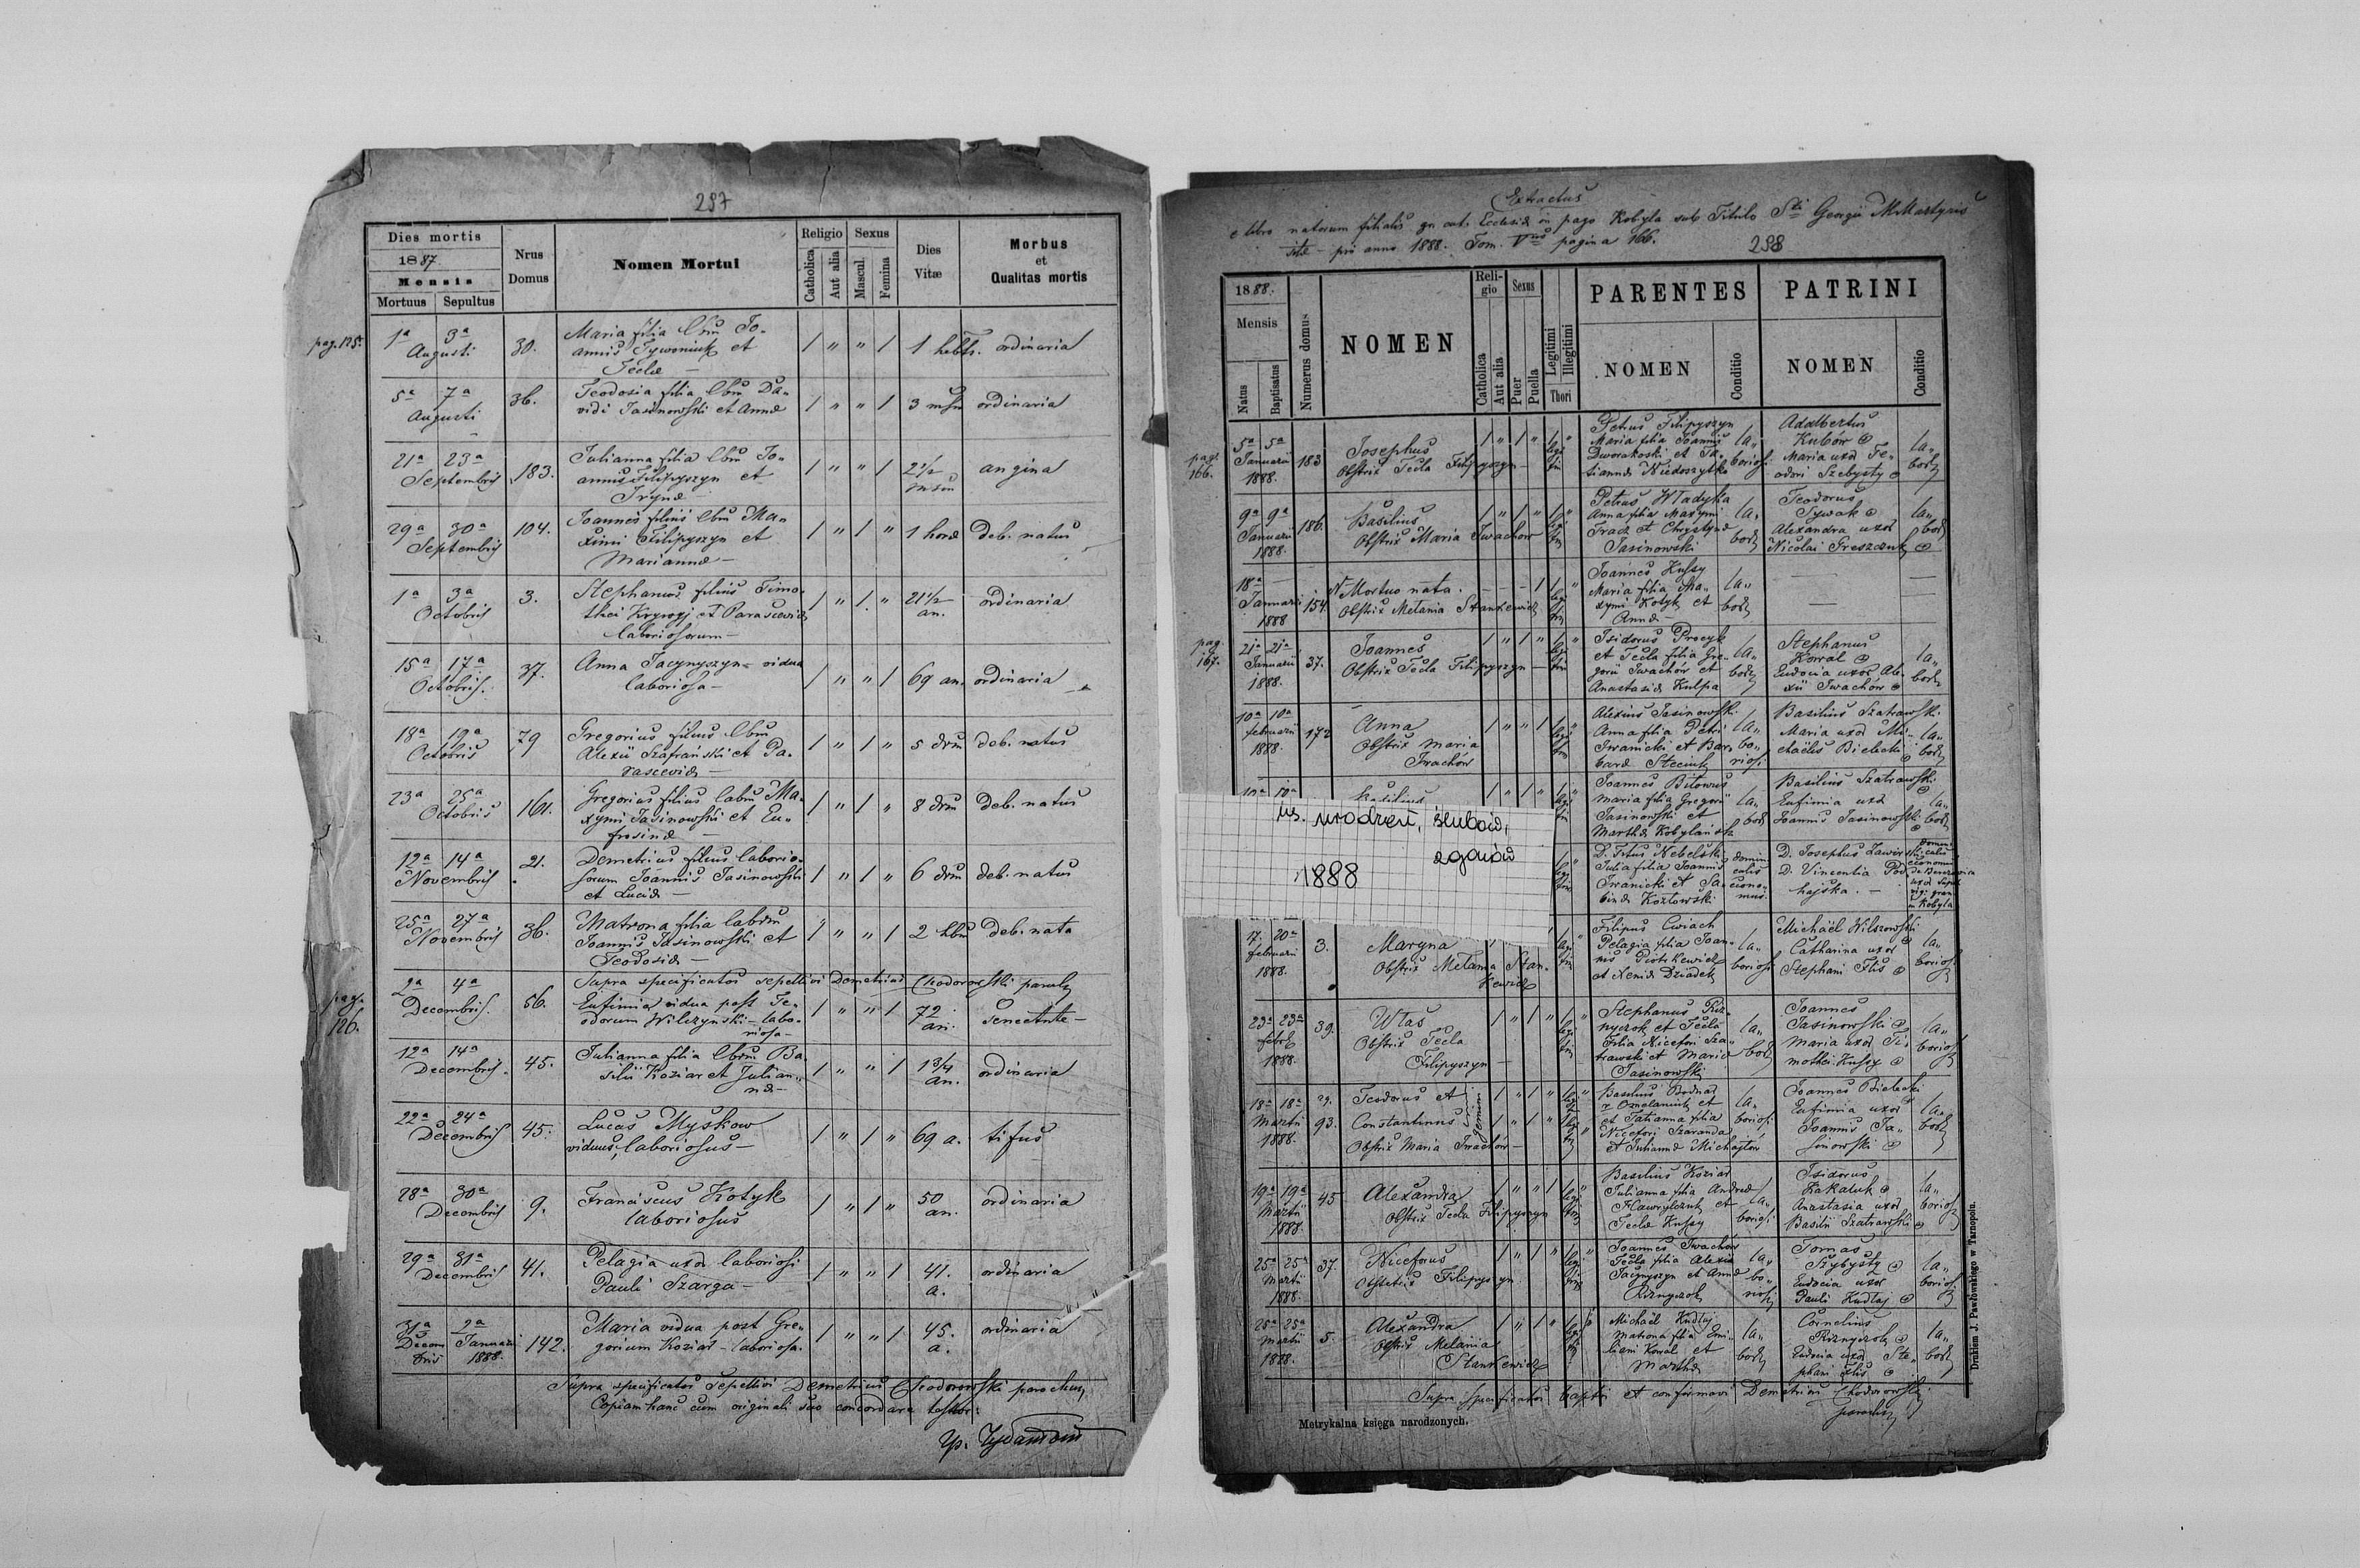 297
Dies mortis
1887.
Mensis
Mortuus Sepultus
Nrus Domus
Nomen Mortui
Religio
Catholica
Aut alia
Sexus
Mascul.
Femina
Dies Vitæ
Morbus
et
Qualitas mortis
pag. 125.
1a 3a Augusti 30. Maria filia lbru Jo-
annis Tywoniuk et
Teclæ
/ " " / 1 hebd. ordinaria
5a 7a Augusti 36. Teodosia filia lbru Da-
vidi Jasinowski et Annæ
/ " " / 3 msiu ordinaria
21a 23a Septembris 183. Julianna filia lbru Jo-
annis Filipyszyn et
Irynæ
/ " " / 2 1/2 msiu angina
29a 30a Septembris 104. Joannes filius lbru Ma-
ximi Filipyszyn et
Mariannæ
/ " / " 1 horæ Deb. natus
1a 3a Octobris 3. Stephanus filius Timo-
thei Krywyj et Parascewiæ
laboriosorum
/ " / " 21 1/2 an. ordinaria
15a 17a Octobris. 37. Anna Jacynyszyn vidua
laboriosa
/ " " / 69 an. ordinaria
18a 19a Octobris 79 Gregorius filius lbru
Alexii Szafrański et Pa-
rasceviæ
/ " / " 5 dru deb. natus
23a 25a Octobris 161. Gregorius filius labru Ma-
xymi Jasinowski et Eu-
frosinæ
/ " / " 8 dru deb. natus
12a 14a Novembris 21. Demetrius filius laborio-
sorum Joannis Jasinowski
et Luciæ
/ " / " 6 dru deb. natus
25a 27a Novembris 36. Matrona filia labru
Joannis Jasinowski et
Teodosiæ
/ " " / 2 hbu deb. nata
Supra specificatos sepelivi Demetrius Chodorowski paroch
pag. 126.
2a 4a Decembris. 56. Eufimia vidua post Te-
odorum Wilczynski labo-
riosa
/ " " / 72 an. Senectute
12a 14a Decembris. 45. Julianna filia lbru Ba
silii Koziar et Julian-
næ
/ " " / 1 3/4 an. ordinaria
22a 24a Decembris 45. Lucas Myskow
viduus, laboriosus
/ " / " 69 a. tifus
28a 30a Decembris 9. Franciscus Kotyk
laboriosus
/ " / " 50 an. ordinaria
29a 31a Decembris 41. Pelagia uxor laboriosi
Pauli Szarga
/ " " / 41. a. ordinaria
31a Decembris 2a Januarii 1888. 142. Maria vidua post Gre-
gorium Koziar laboriosa.
/ " " / 45. a. ordinaria
Supra specificatos Sepelivi Demetrius Chodorowski parochus
Copiam hanc cum originali suo concordare testor:
Extractus
e libro natorum filialis gr. cat. Ecclesiæ in pago Kobyla sub Titulo Sti Georgii M Martyris
sitæ pro anno 1888. Tom. Vus pagina 166.
298
1888.
Mensis
Natus
Baptisatus
Numerus domus
NOMEN
Religio
Catholica
Aut alia
Sexus
Puer
Puella
Legitimi
Illegitimi
Thori
PARENTES
NOMEN
Conditio
PATRINI
NOMEN
Conditio
pag. 166.
5a 5a Januarii 1888. 183 Josephus
Obstrix Tecla Filipyszyn
Petrus Filipyszyn
Maria filia Joannis
Dworakoski et Ta-
tiannæ Niedoszytko
laboriosi
Adalbertus
Kubów
Maria uxor Te-
odori Szebysty
9a 9a Januarii 1888. 186. Basilius
Obstrix Maria Iwachow
Petrus Wladyka
Anna filia Maxymi
Tracz et Chrystynæ
Jasinowski
Teodorus
Sywak
Alexandra uxor
Nicolai Greszczuk
18a Januarii 1888 154. Mortuo nata.
Obstrix Melania Stankewicz
Joannes Hussy
Maria filia Ma-
xymi Kotyk et
Annæ
pag. 167.
21a 21a Januarii 1888. 37. Joannes
Obstrix Tecla Filipyszyn
Isidorus Procyk
et Tecla filia Gre-
gorii Iwachów et
Anastasiæ Kulpa
Stephanus
Kowal
Eudocia uxor Ale-
xii Iwachów
10a 10a februarii 1888. 172 Anna
Obstrix Maria
Iwachów
Alexius Jasinowski
Anna filia Petri
Iwanicki et Bar-
baræ Steciuk
laboriosi
Basilius Szatrawski
Maria uxor Mi-
chaëlis Bielecki
10a 10a Basilius
Joannes Bitowus
Maria filia Gregorii
Jasinowski et
Marthæ Kobylańska
Basilius Szatrawski
Eufimia uxor
Joannis Jasinowski
Ks. urodzeń, ślubów,
zgonów
1888
D. Titus Nebelski
Julia filia Joannis
Iwanicki et Sa-
binæ Kozłowski
D. Josephus Zawirski
D. Vincentia Pod
hajska.
17. 20a februarii 1888. 3. Maryna
Obstrix Melania Stan-
kewicz
Filipus Cwiach
Pelagia filia Joan-
nis Piotrkewicz
et Xeniæ Dziadek
laboriosi
Michaël Wilszowski
Catharina uxor
Stephani Flis
laboriosi
23a 23a febr. 1888. 39. Wlas
Obstrix Tecla
Filipyszyn
Stephanus Riz-
nyczok et Tecla
Filia Nicefori Sza-
trawski et Maria
Jasinowski
Joannes
Jasinowski
Maria uxor Ti-
mothei Hussy
18a 18a Martii 1888. 29. 93. Teodorus et
Constantinus gemini
Obstrix Maria Iwachów
Basilius Bodnar
r Omelaniuk et
et Tatianna filia
Nicefori Szaranda
et Juliannæ Michajlow
Joannes Bielecki
Eufimia uxor
Joannis Ja-
sinowski
19a 19a Martii 1888. 45 Alexandra
Obstrix Tecla Filipyszyn
Basilius Koziar
Julianna filia Andreæ
Hawrylczuk et
Teclæ Hussy
laboriosi
Isidorus
Kakaluk
Anastasia uxor
Basilii Szatrawski
25a 25a Martii 1888. 37. Niceforus
Obstetrix Filipyszyn
Joannes Iwachów
Tecla filia Alexii
Jacynyszyn et Annæ
Riznyczok
laboriosi
Tomas
Szybysty
Eudocia uxor
Pauli Kudlaj
25a 25a Martii 1888. 5. Alexandra
Obstrix Melania
Stankewicz
Michaël Kudlaj
Matrona filia Emi-
liani Kowal et
Marthæ
Cornelius
Riznyczok
Eudocia uxor Ste-
phani Flis
Supra specificatos baptisavi et confirmavi Demetrius Chodorowski
parochus
Metrykalna księga narodzonych.
Drukiem J. Pawłowskiego w Tarnopolu.